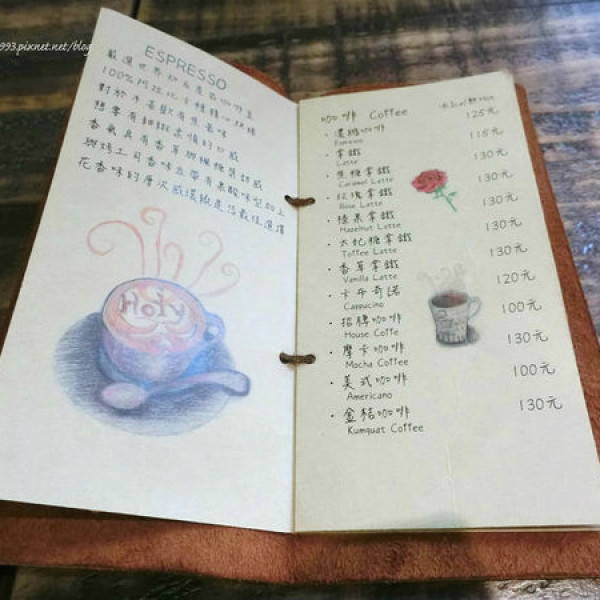 993.pixnet.net/blog
ESPRESSO
嚴選世界知名產區咖啡豆
100%阿拉比卡種精心烘焙
對於不喜歡有焦苦味
想要有細緻柔順的口感
香氣具有香草與楓糖莢甜感
與烤土司香味並帶有果酸味型加上
花香味的層次感濃緻是您最佳選擇
Holy
咖啡 Coffee
冰Ice/熱Hot
· 濃縮咖啡 125元
Espresso
· 拿鐵 115元
Latte
· 焦糖拿鐵 130元
Caramel Latte
· 玫瑰拿鐵 130元
Rose Latte
· 榛果拿鐵 130元
Hazelnut Latte
· 太妃糖拿鐵 130元
Toffee Latte
· 香草拿鐵 130元
Vanilla Latte
· 卡布奇諾 120元
Cappucino
· 招牌咖啡 100元
House Coffe
· 摩卡咖啡 130元
Mocha Coffee
· 美式咖啡 100元
Americano
· 金桔咖啡 130元
Kumquat Coffee